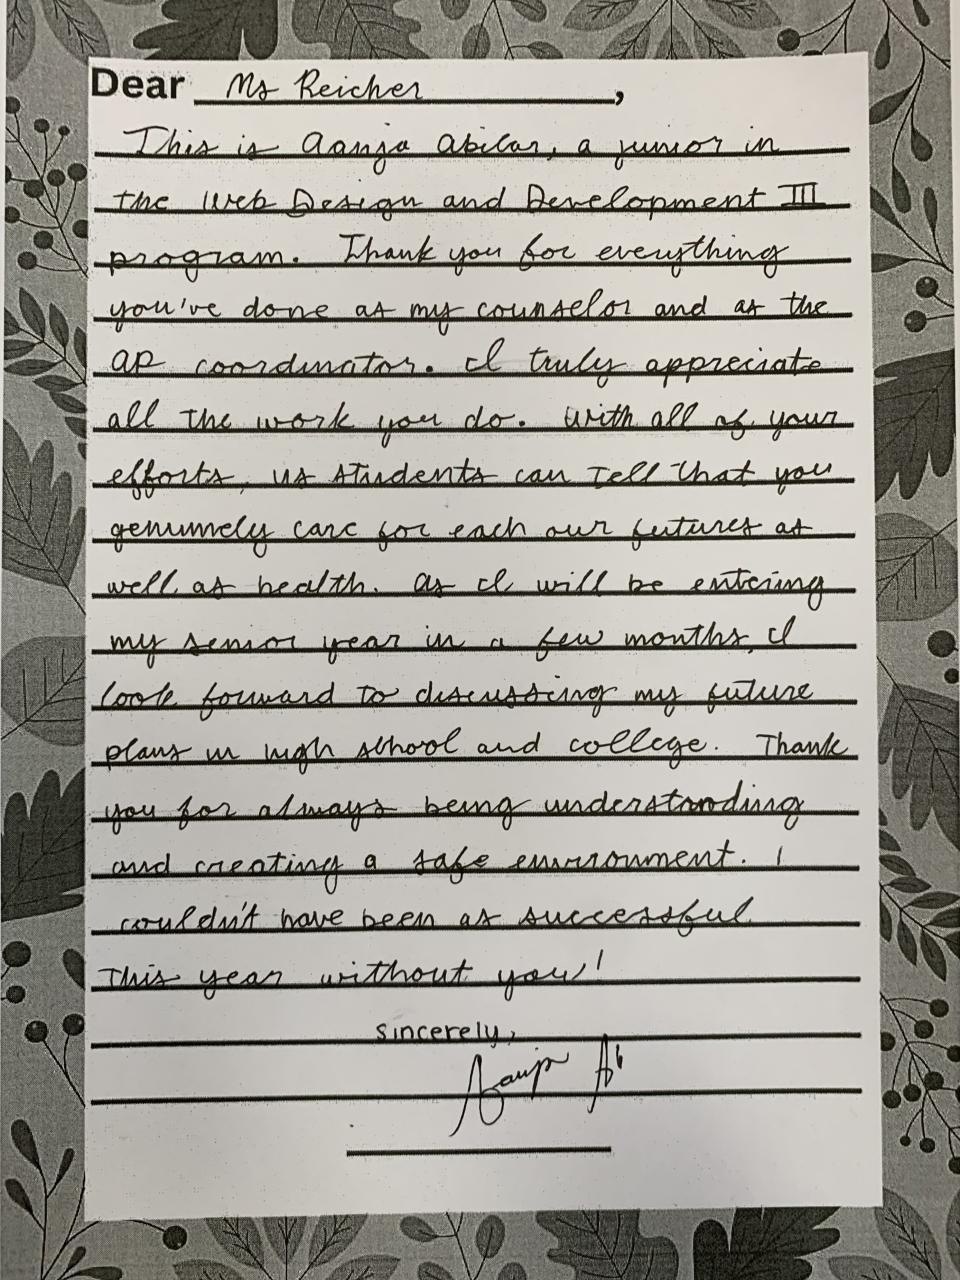 Dear Ms Reicher,
This is Aanja Abilar, a junior in
the Web Design and Development III
program. Thank you for everything
you've done as my counselor and as the
AP coordinator. I truly appreciate
all the work you do. With all of your
efforts, us students can tell that you
genuinely care for each our futures as
well as health. As I will be entering
my senior year in a few months, I
look forward to discussing my future
plans in high school and college. Thank
you for always being understanding
and creating a safe environment. I
couldn't have been as successful
this year without you!
sincerely,
Aanja